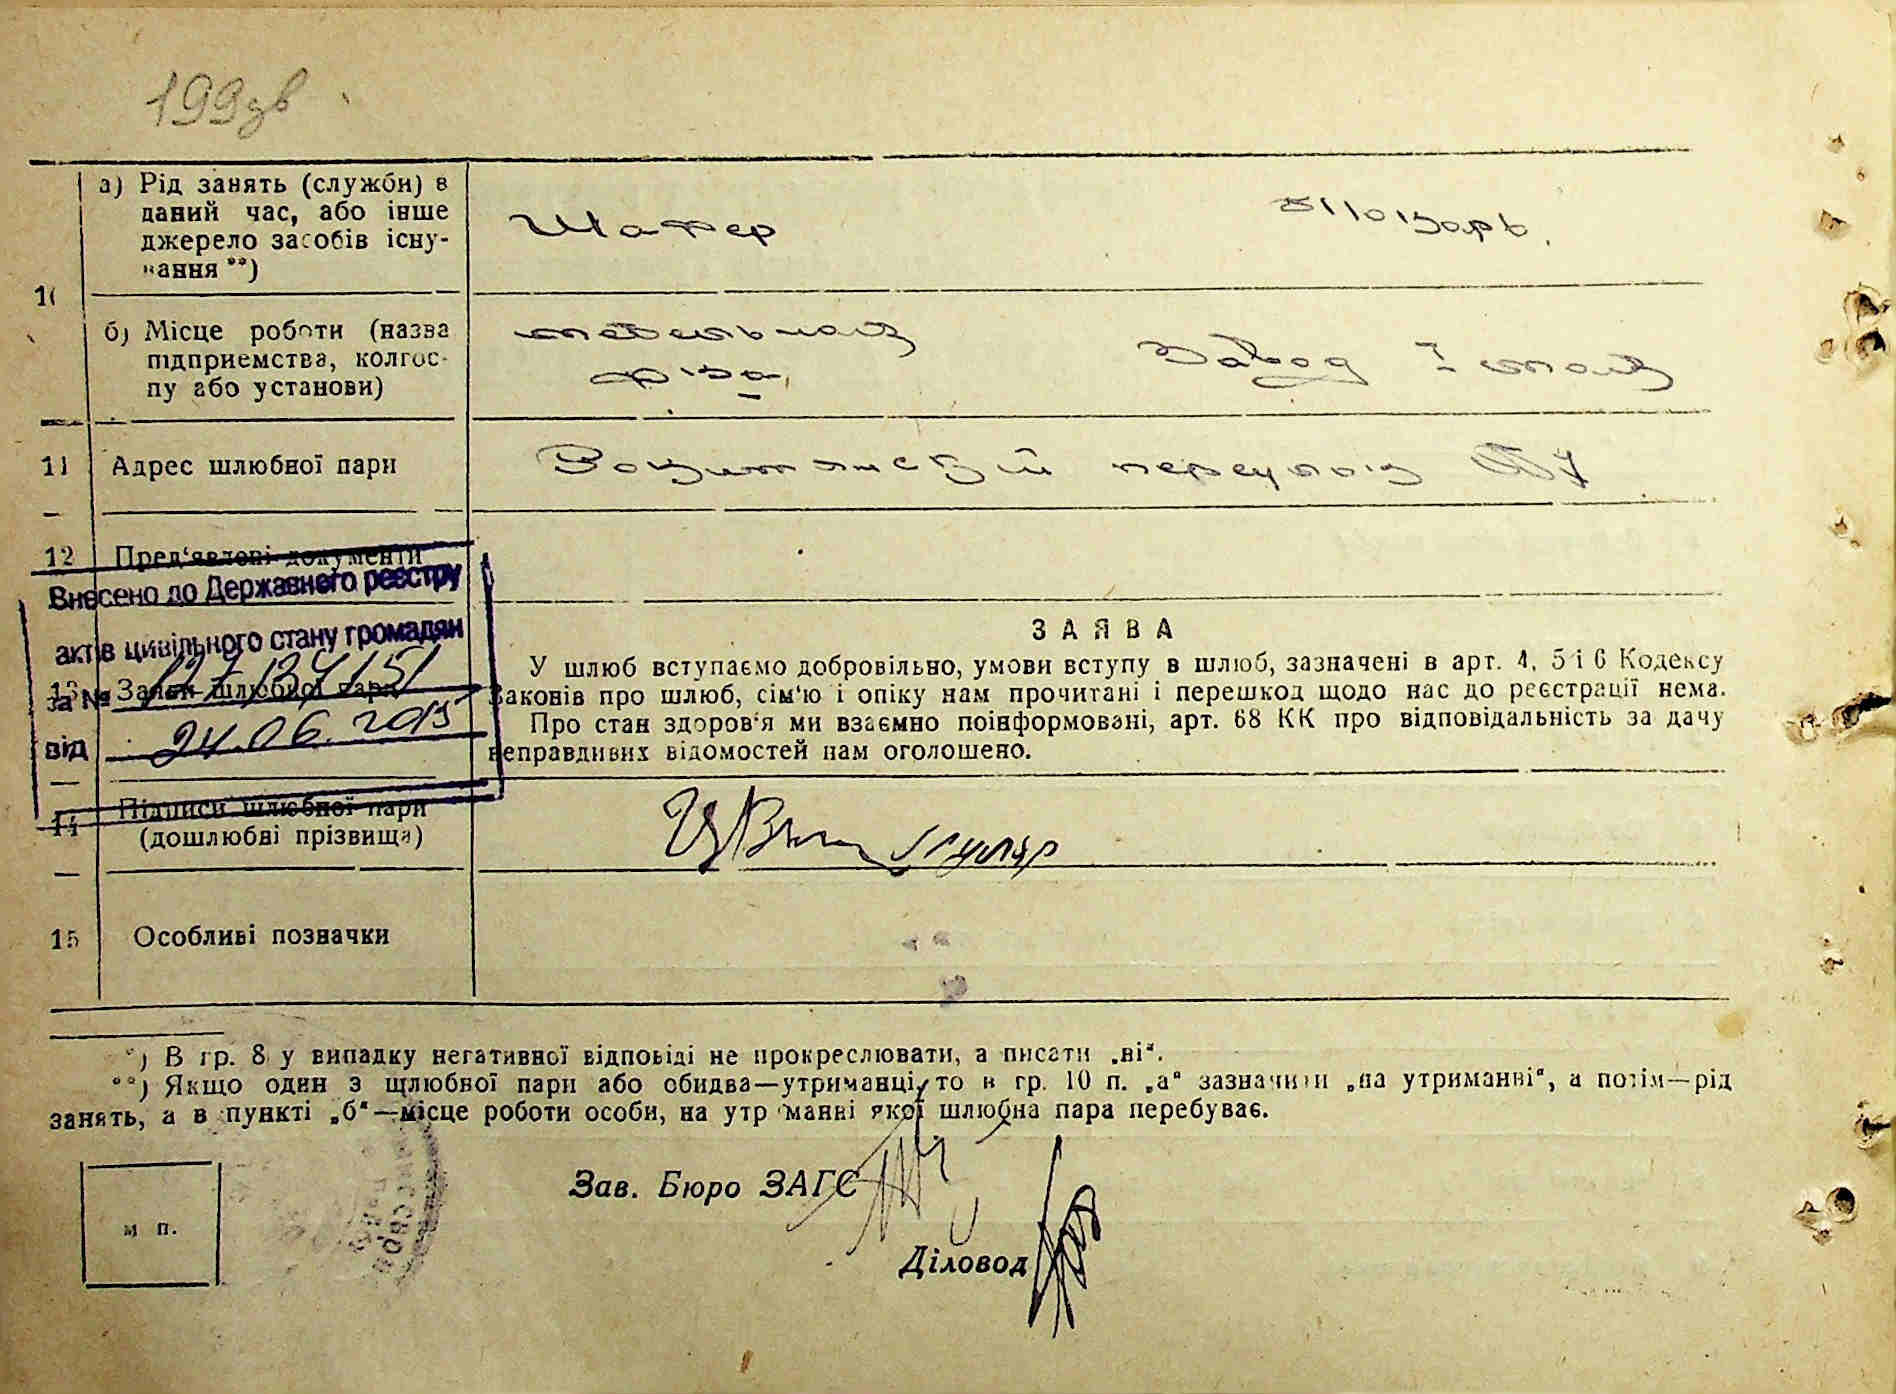 199зв
а) Рід занять (служби) в
даний час, або інше
джерело засобів існу-
вання **)
Шофер
токарь.
10
б) Місце роботи (назва
підприємства, колгос-
пу або установи)
Завод
11 Адрес шлюбної пари
переулок
12 Пред'явлені документи
Внесено до Державного реєстру
актів цивільного стану громадян
13 Заява шлюбної пари
за №
від 24.06.2013
ЗАЯВА
У шлюб вступаємо добровільно, умови вступу в шлюб, зазначені в арт. 4, 5 і 6 Кодексу
законів про шлюб, сім'ю і опіку нам прочитані і перешкод щодо нас до реєстрації нема.
Про стан здоров'я ми взаємно поінформовані, арт. 68 КК про відповідальність за дачу
неправдивих відомостей нам оголошено.
14 Підписи шлюбної пари
(дошлюбні прізвища)
15 Особливі позначки
*) В гр. 8 у випадку негативної відповіді не прокреслювати, а писати „ні“.
**) Якщо один з шлюбної пари або обидва—утриманці, то в гр. 10 п. „а“ зазначити „на утриманні“, а потім—рід
занять, а в пункті „б“—місце роботи особи, на утриманні якої шлюбна пара перебуває.
Зав. Бюро ЗАГС
м п.
Діловод